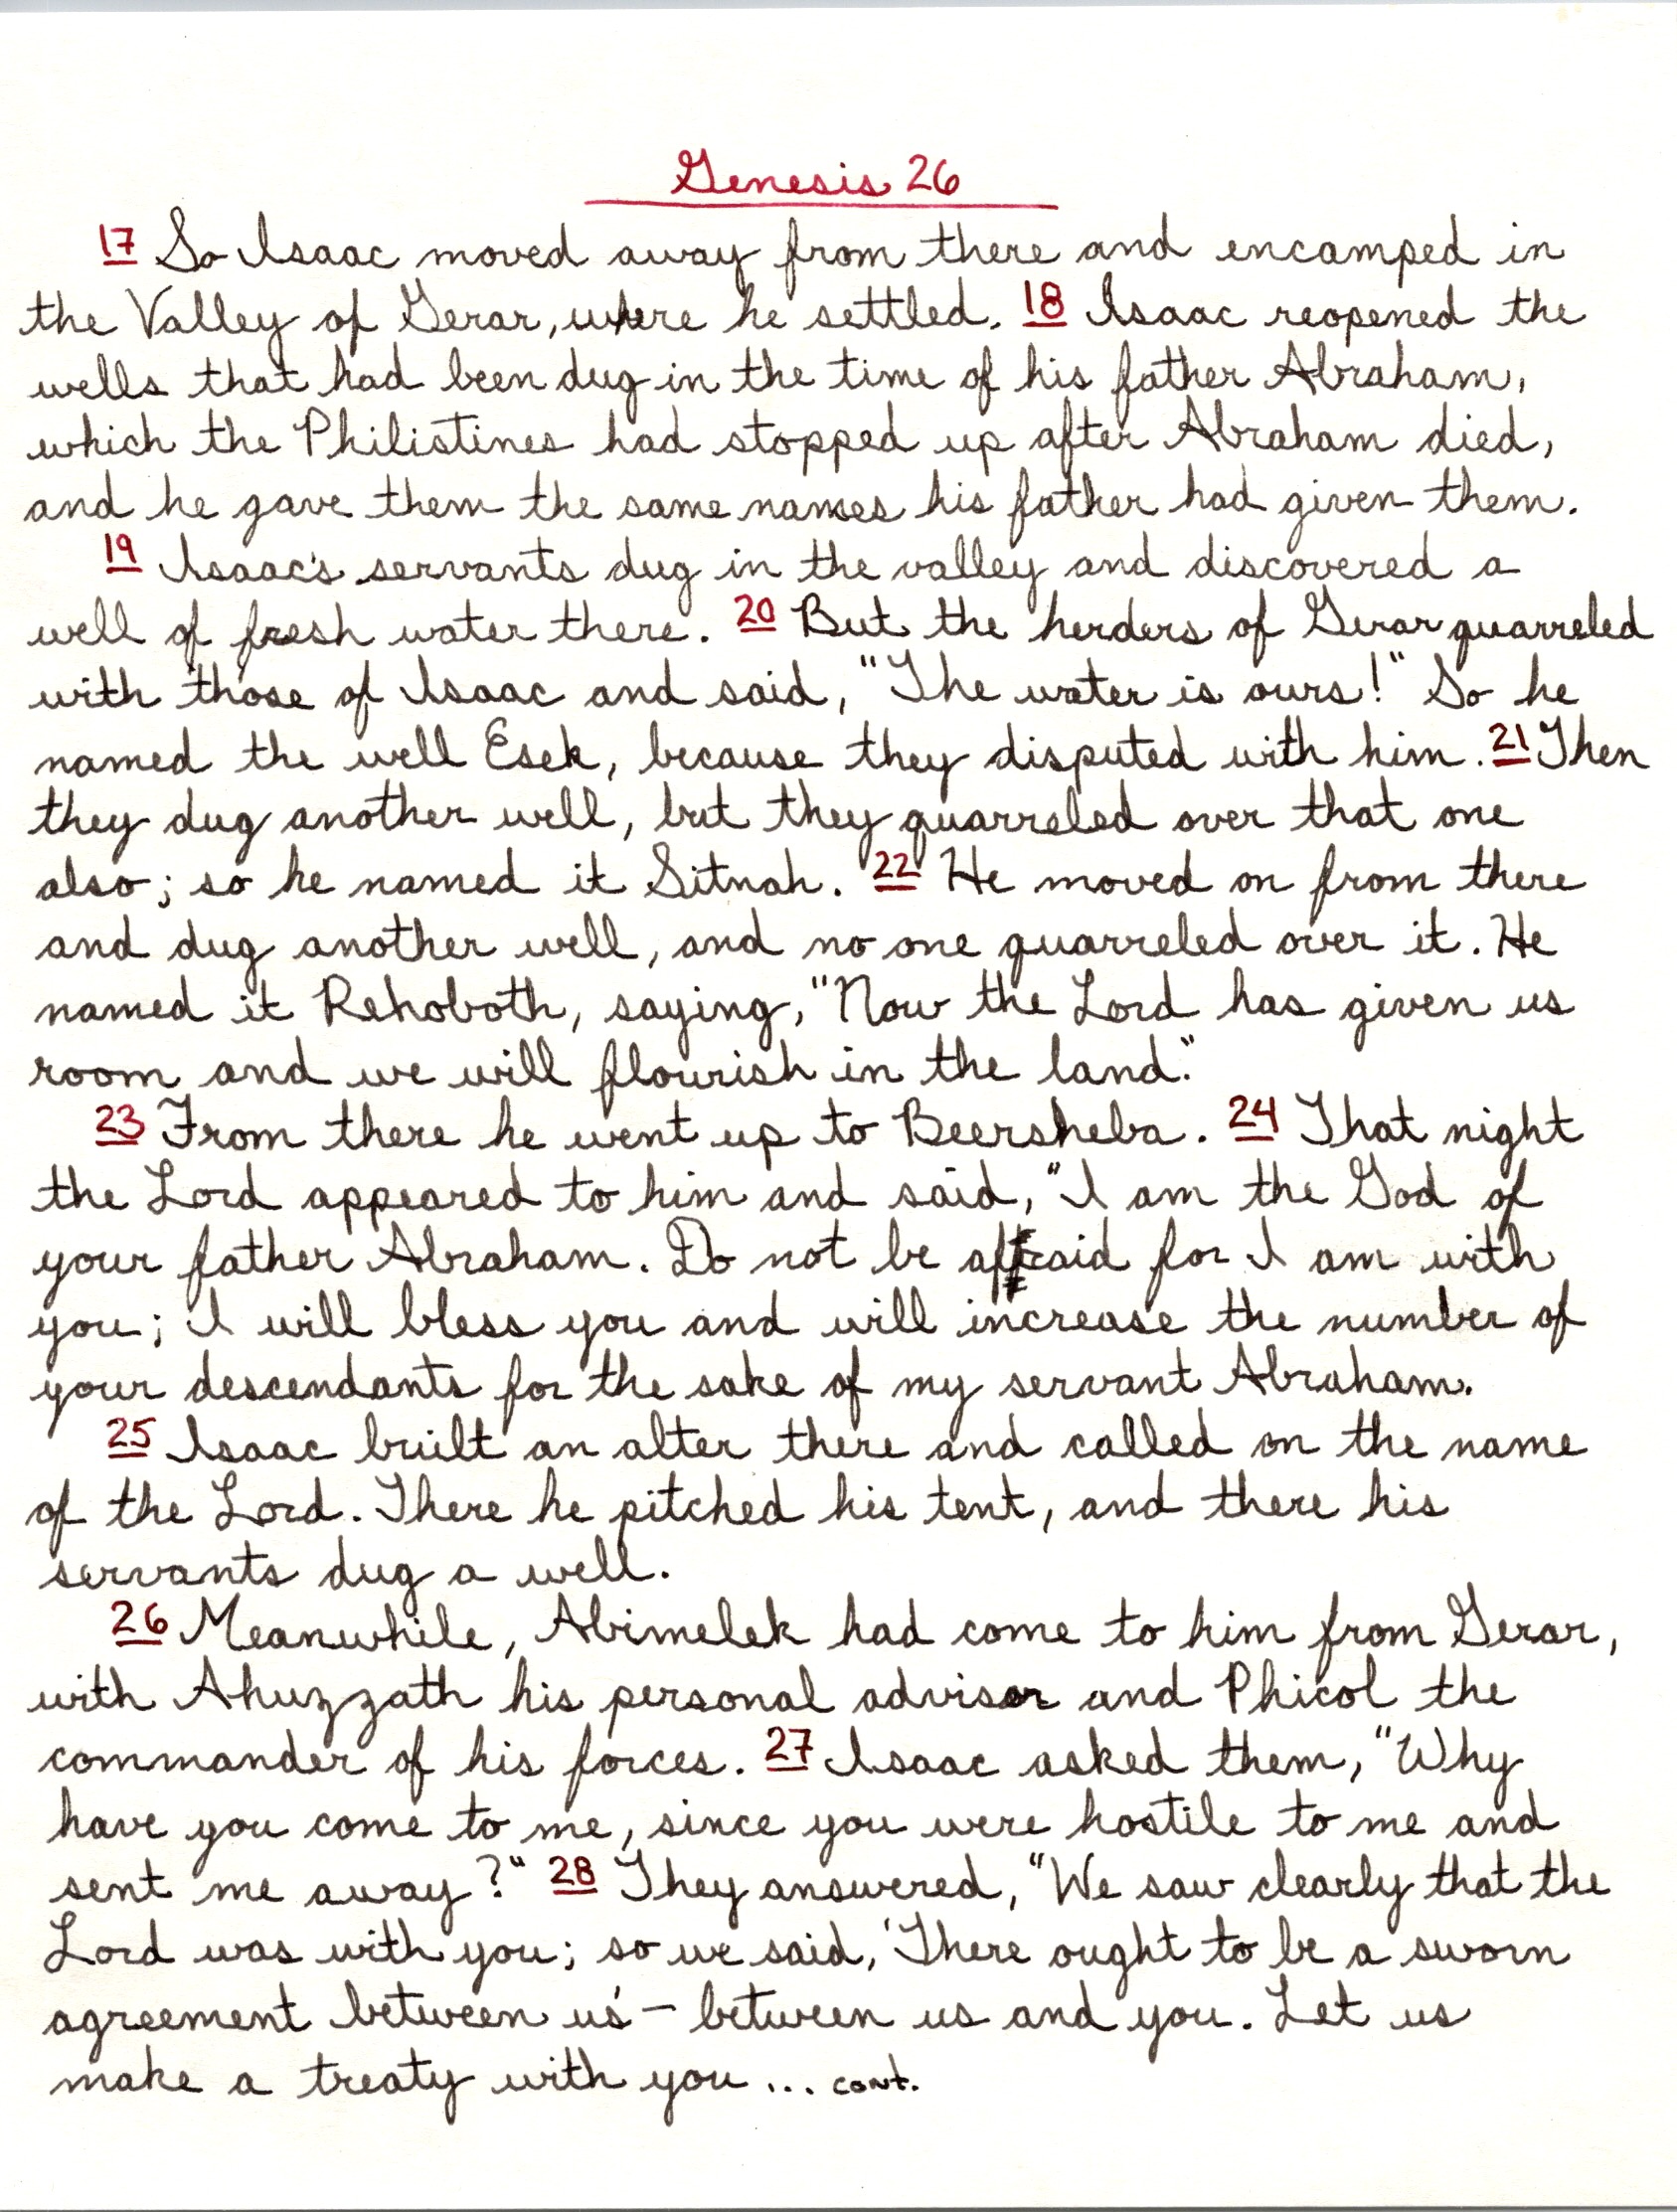 Genesis 26
17 So Isaac moved away from there and encamped in
the Valley of Gerar, where he settled. 18 Isaac reopened the
wells that had been dug in the time of his father Abraham,
which the Philistines had stopped up after Abraham died,
and he gave them the same names his father had given them.
19 Isaac's servants dug in the valley and discovered a
well of fresh water there. 20 But the herders of Gerar quarreled
with those of Isaac and said, "The water is ours!" So he
named the well Esek, because they disputed with him. 21 Then
they dug another well, but they quarreled over that one
also; so he named it Sitnah. 22 He moved on from there
and dug another well, and no one quarreled over it. He
named it Rehoboth, saying, "Now the Lord has given us
room and we will flourish in the land."
23 From there he went up to Beersheba. 24 That night
the Lord appeared to him and said, "I am the God of
your father Abraham. Do not be afraid for I am with
you; I will bless you and will increase the number of
your descendants for the sake of my servant Abraham.
25 Isaac built an alter there and called on the name
of the Lord. There he pitched his tent, and there his
servants dug a well.
26 Meanwhile, Abimelek had come to him from Gerar,
with Ahuzzath his personal advisor and Phicol the
commander of his forces. 27 Isaac asked them, "Why
have you come to me, since you were hostile to me and
sent me away?" 28 They answered, "We saw clearly that the
Lord was with you; so we said, 'There ought to be a sworn
agreement between us' - between us and you. Let us
make a treaty with you ... cont.